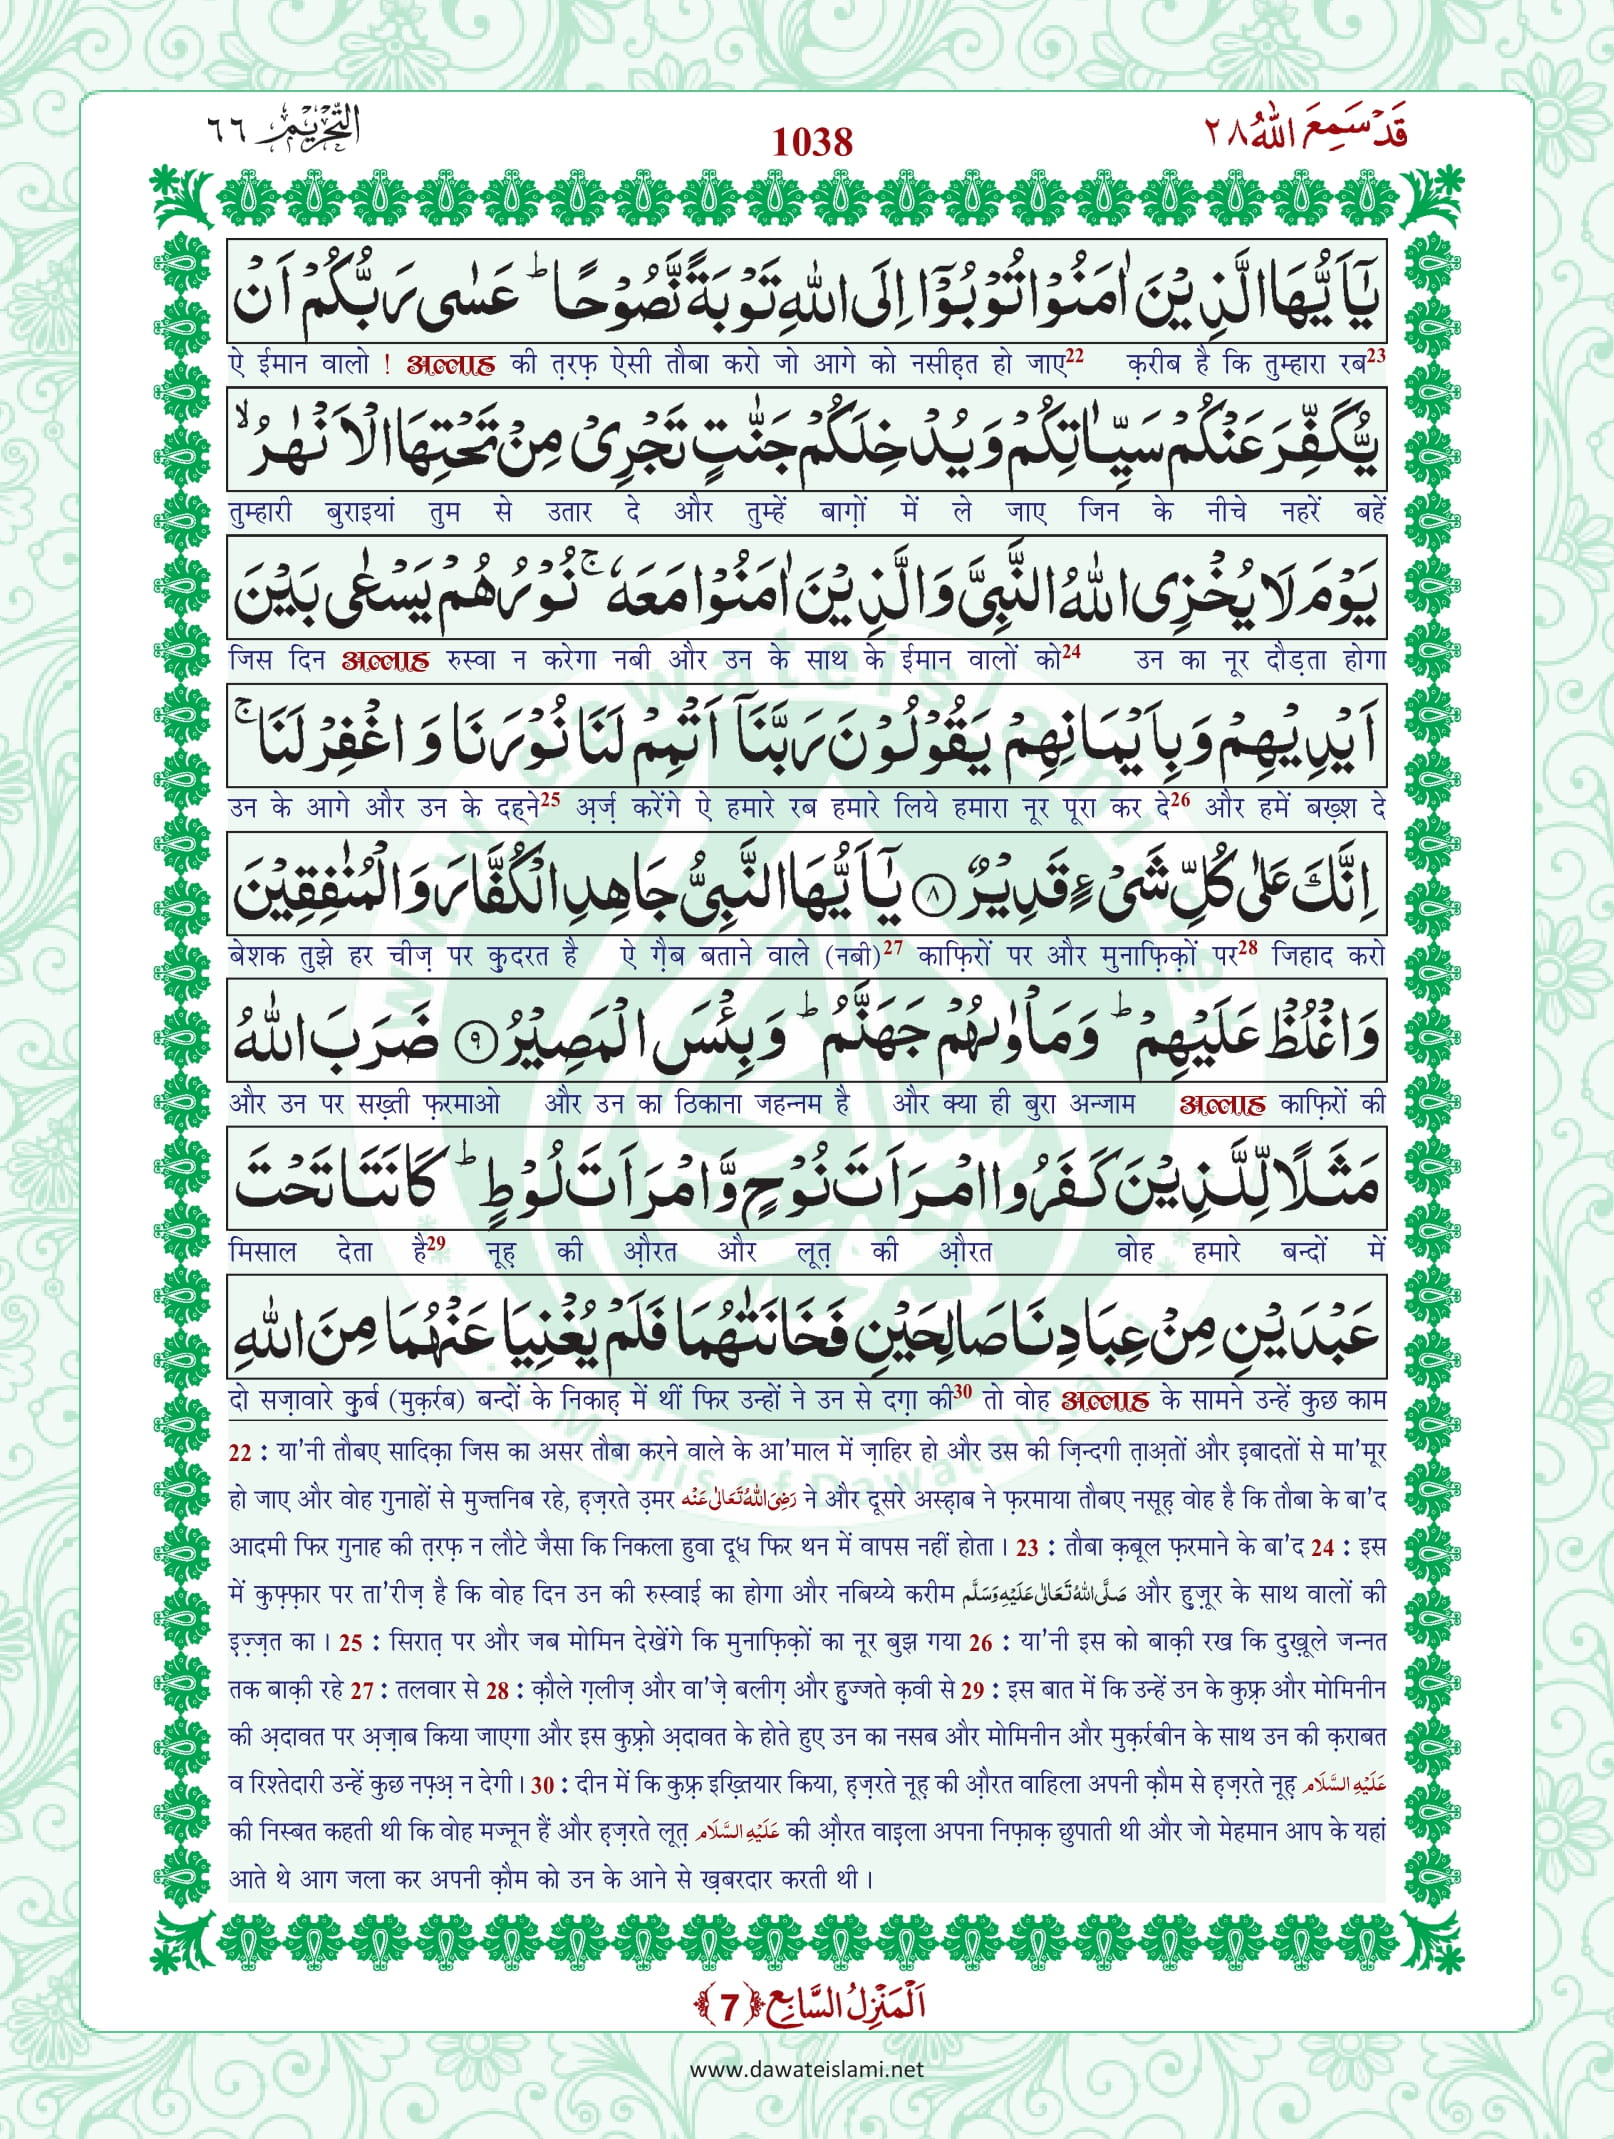 التحريم ٦٦
1038
قَدۡ سَمِعَ اللّٰهُ ٢٨
يٰۤاَيُّهَا الَّذِيۡنَ اٰمَنُوۡا تُوۡبُوۡۤا اِلَى اللّٰهِ تَوۡبَةً نَّصُوۡحًا ؕ عَسٰى رَبُّكُمۡ اَنۡ
ऐ ईमान वालो ! अल्लाह की त़रफ़ ऐसी तौबा करो जो आगे को नसीह़त हो जाए22 क़रीब है कि तुम्हारा रब23
يُّكَفِّرَ عَنۡكُمۡ سَيِّاٰتِكُمۡ وَيُدۡخِلَكُمۡ جَنّٰتٍ تَجۡرِىۡ مِنۡ تَحۡتِهَا الۡاَنۡهٰرُ ۙ
तुम्हारी बुराइयां तुम से उतार दे और तुम्हें बाग़ों में ले जाए जिन के नीचे नहरें बहें
يَوۡمَ لَا يُخۡزِى اللّٰهُ النَّبِىَّ وَالَّذِيۡنَ اٰمَنُوۡا مَعَهٗ ۚ نُوۡرُهُمۡ يَسۡعٰى بَيۡنَ
जिस दिन अल्लाह रुस्वा न करेगा नबी और उन के साथ के ईमान वालों को24 उन का नूर दौड़ता होगा
اَيۡدِيۡهِمۡ وَبِاَيۡمَانِهِمۡ يَقُوۡلُوۡنَ رَبَّنَاۤ اَتۡمِمۡ لَنَا نُوۡرَنَا وَاغۡفِرۡ لَنَا ۚ
उन के आगे और उन के दह्ने25 अ़र्ज़ करेंगे ऐ हमारे रब हमारे लिये हमारा नूर पूरा कर दे26 और हमें बख़्श दे
اِنَّكَ عَلٰى كُلِّ شَىۡءٍ قَدِيۡرٌ ﴿٨﴾ يٰۤاَيُّهَا النَّبِىُّ جَاهِدِ الۡكُفَّارَ وَالۡمُنٰفِقِيۡنَ
बेशक तुझे हर चीज़ पर क़ुदरत है ऐ ग़ैब बताने वाले (नबी)27 काफ़िरों पर और मुनाफ़िक़ों पर28 जिहाद करो
وَاغۡلُظۡ عَلَيۡهِمۡ ؕ وَمَاۡوٰٮهُمۡ جَهَنَّمُ ؕ وَبِئۡسَ الۡمَصِيۡرُ ﴿٩﴾ ضَرَبَ اللّٰهُ
और उन पर सख़्ती फ़रमाओ और उन का ठिकाना जहन्नम है और क्या ही बुरा अन्जाम अल्लाह काफ़िरों की
مَثَلًا لِّلَّذِيۡنَ كَفَرُوا امۡرَاَتَ نُوۡحٍ وَّامۡرَاَتَ لُوۡطٍ ؕ كَانَتَا تَحۡتَ
मिसाल देता है29 नूह़ की औ़रत और लूत़ की औ़रत वोह हमारे बन्दों में
عَبۡدَيۡنِ مِنۡ عِبَادِنَا صَالِحَيۡنِ فَخَانَتٰهُمَا فَلَمۡ يُغۡنِيَا عَنۡهُمَا مِنَ اللّٰهِ
दो सज़ावारे क़ुर्ब (मुक़र्रब) बन्दों के निकाह़ में थीं फिर उन्हों ने उन से दग़ा की30 तो वोह अल्लाह के सामने उन्हें कुछ काम
22 : या'नी तौबए सादिक़ा जिस का असर तौबा करने वाले के आ'माल में ज़ाहिर हो और उस की ज़िन्दगी त़ाअ़तों और इबादतों से मा'मूर
हो जाए और वोह गुनाहों से मुज्तनिब रहे, ह़ज़रते उ़मर رَضِىَ اللّٰهُ تَعَالٰى عَنْه ने और दूसरे अस्ह़ाब ने फ़रमाया तौबए नसूह़ वोह है कि तौबा के बा'द
आदमी फिर गुनाह की त़रफ़ न लौटे जैसा कि निकला हुवा दूध फिर थन में वापस नहीं होता । 23 : तौबा क़बूल फ़रमाने के बा'द 24 : इस
में कुफ़्फ़ार पर ता'रीज़ है कि वोह दिन उन की रुस्वाई का होगा और नबिय्ये करीम صَلَّى اللّٰهُ تَعَالٰى عَلَيْهِ وَسَلَّم और हुज़ूर के साथ वालों की
इ़ज़्ज़त का । 25 : सिरात़ पर और जब मोमिन देखेंगे कि मुनाफ़िक़ों का नूर बुझ गया 26 : या'नी इस को बाक़ी रख कि दुख़ूले जन्नत
तक बाक़ी रहे 27 : तलवार से 28 : क़ौले ग़लीज़ और वा'ज़े बलीग़ और हु़ज्जते क़वी से 29 : इस बात में कि उन्हें उन के कुफ़्र और मोमिनीन
की अ़दावत पर अ़ज़ाब किया जाएगा और इस कुफ़्रो अ़दावत के होते हुए उन का नसब और मोमिनीन और मुक़र्रबीन के साथ उन की क़राबत
व रिश्तेदारी उन्हें कुछ नफ़्अ़ न देगी । 30 : दीन में कि कुफ़्र इख़्तियार किया, ह़ज़रते नूह़ की औ़रत वाहिला अपनी क़ौम से ह़ज़रते नूह़ عَلَيْهِ السَّلَام
की निस्बत कहती थी कि वोह मज्नून हैं और ह़ज़रते लूत़ عَلَيْهِ السَّلَام की औ़रत वाइला अपना निफ़ाक़ छुपाती थी और जो मेहमान आप के यहां
आते थे आग जला कर अपनी क़ौम को उन के आने से ख़बरदार करती थी ।
اَلْمَنْزِلُ السَّابِع ﴿7﴾
www.dawateislami.net